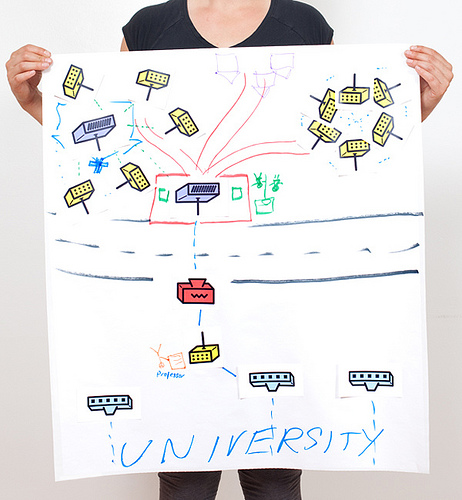 Professor
UNIVERSITY